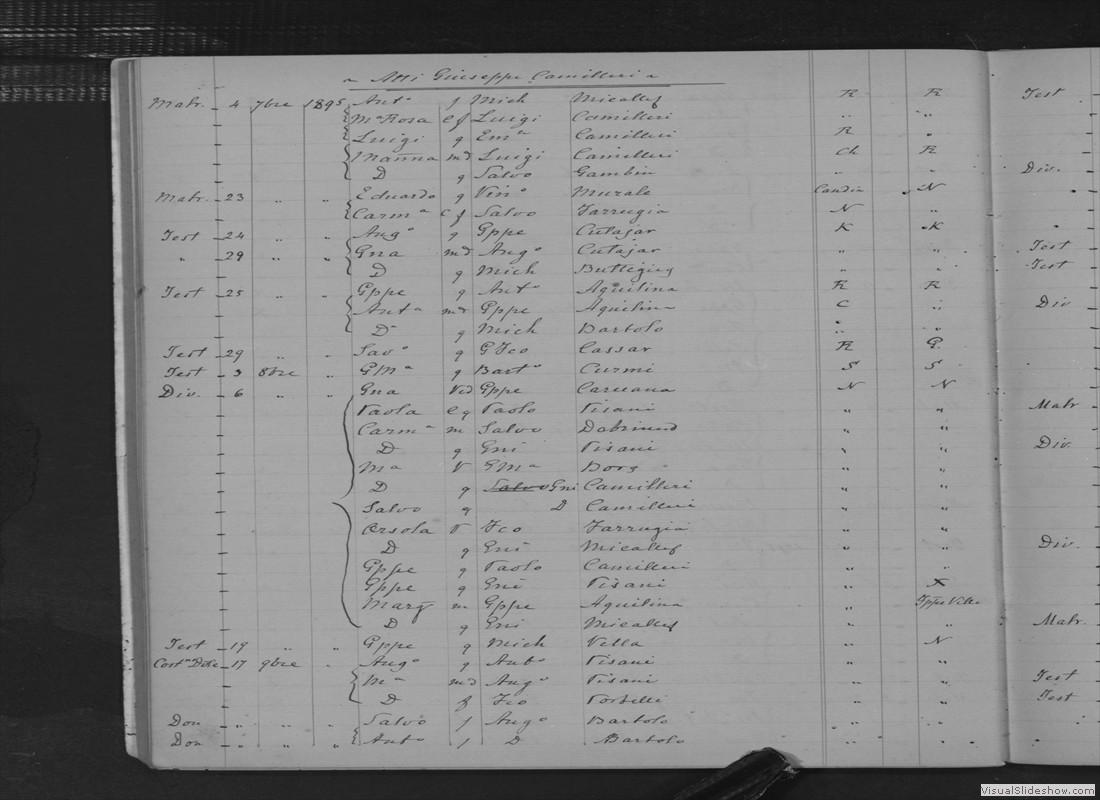 ~ Atti Giuseppe Camilleri ~
Matr. 4 7bre 1895 Ant° f Mich Micallef R R Test
Mª Rosa e f Luigi Camilleri " "
Luigi g Emª Camilleri R "
Manna md Luigi Camilleri Ch R
D g Salvo Gambin " " Div.
Matr. 23 " " Eduardo g Vin° Murale Candia N
Carmª C f Salvo Farrugia N "
Test 24 " " Aug° g Gppe Cutajar K K
" 29 " " Gna md Aug° Cutajar " " Test
D g Mich Buttigieg " " Test
Test 25 " " Gppe g Ant° Aquilina R R
Antª md Gppe Aquilina C " Div
D g Mich Bartolo " "
Test 29 " " Sav° g GFco Cassar R G
Test 3 8bre " GMª g Bart° Curmi S S
Div. 6 " " Gna Ved Gppe Caruana N N
Paola e g Paolo Pisani " " Matr
Carmª m Salvo " "
D g Gni Pisani " " Div.
Mª V GMª Borg " "
D g Gni Camilleri " "
Salvo g D Camilleri " "
Orsola V Fco Farrugia " "
D g Gni Micallef " " Div.
Gppe g Paolo Camilleri " "
Gppe g Gni Pisani " X
Marg m Gppe Aquilina "
D g Gni Micallef " " Matr.
Test 19 " " Gppe g Mich Vella " N
17 9bre " Aug° g Ant° Pisani " "
Mª md Aug° Pisani " " Test
D f Fco Portelli " " Test
Don " " " Salvo f Aug° Bartolo " "
Don " " " Ant° f D Bartolo " "
VisualSlideshow.com